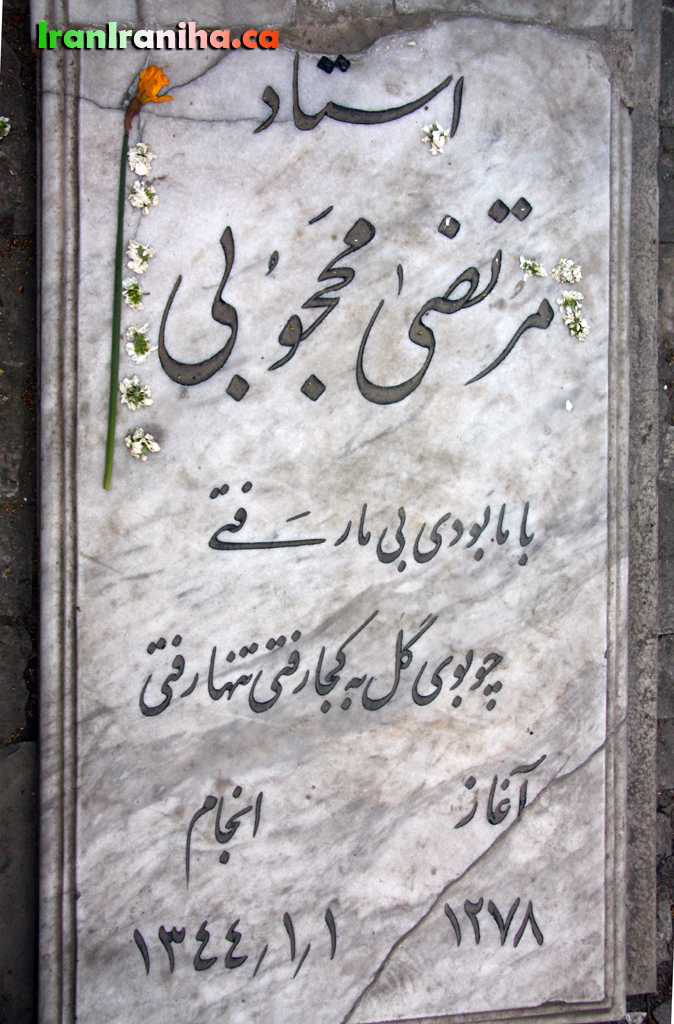 IranIraniha.ca
استاد
مرتضیٰ محَجوُبی
با ما بودی بی ما رَفتی
چو بوی گل به کجا رفتی تنها رفتی
آغاز انجام
۱۲۷۸ ۱۳۴۴/۱/۱